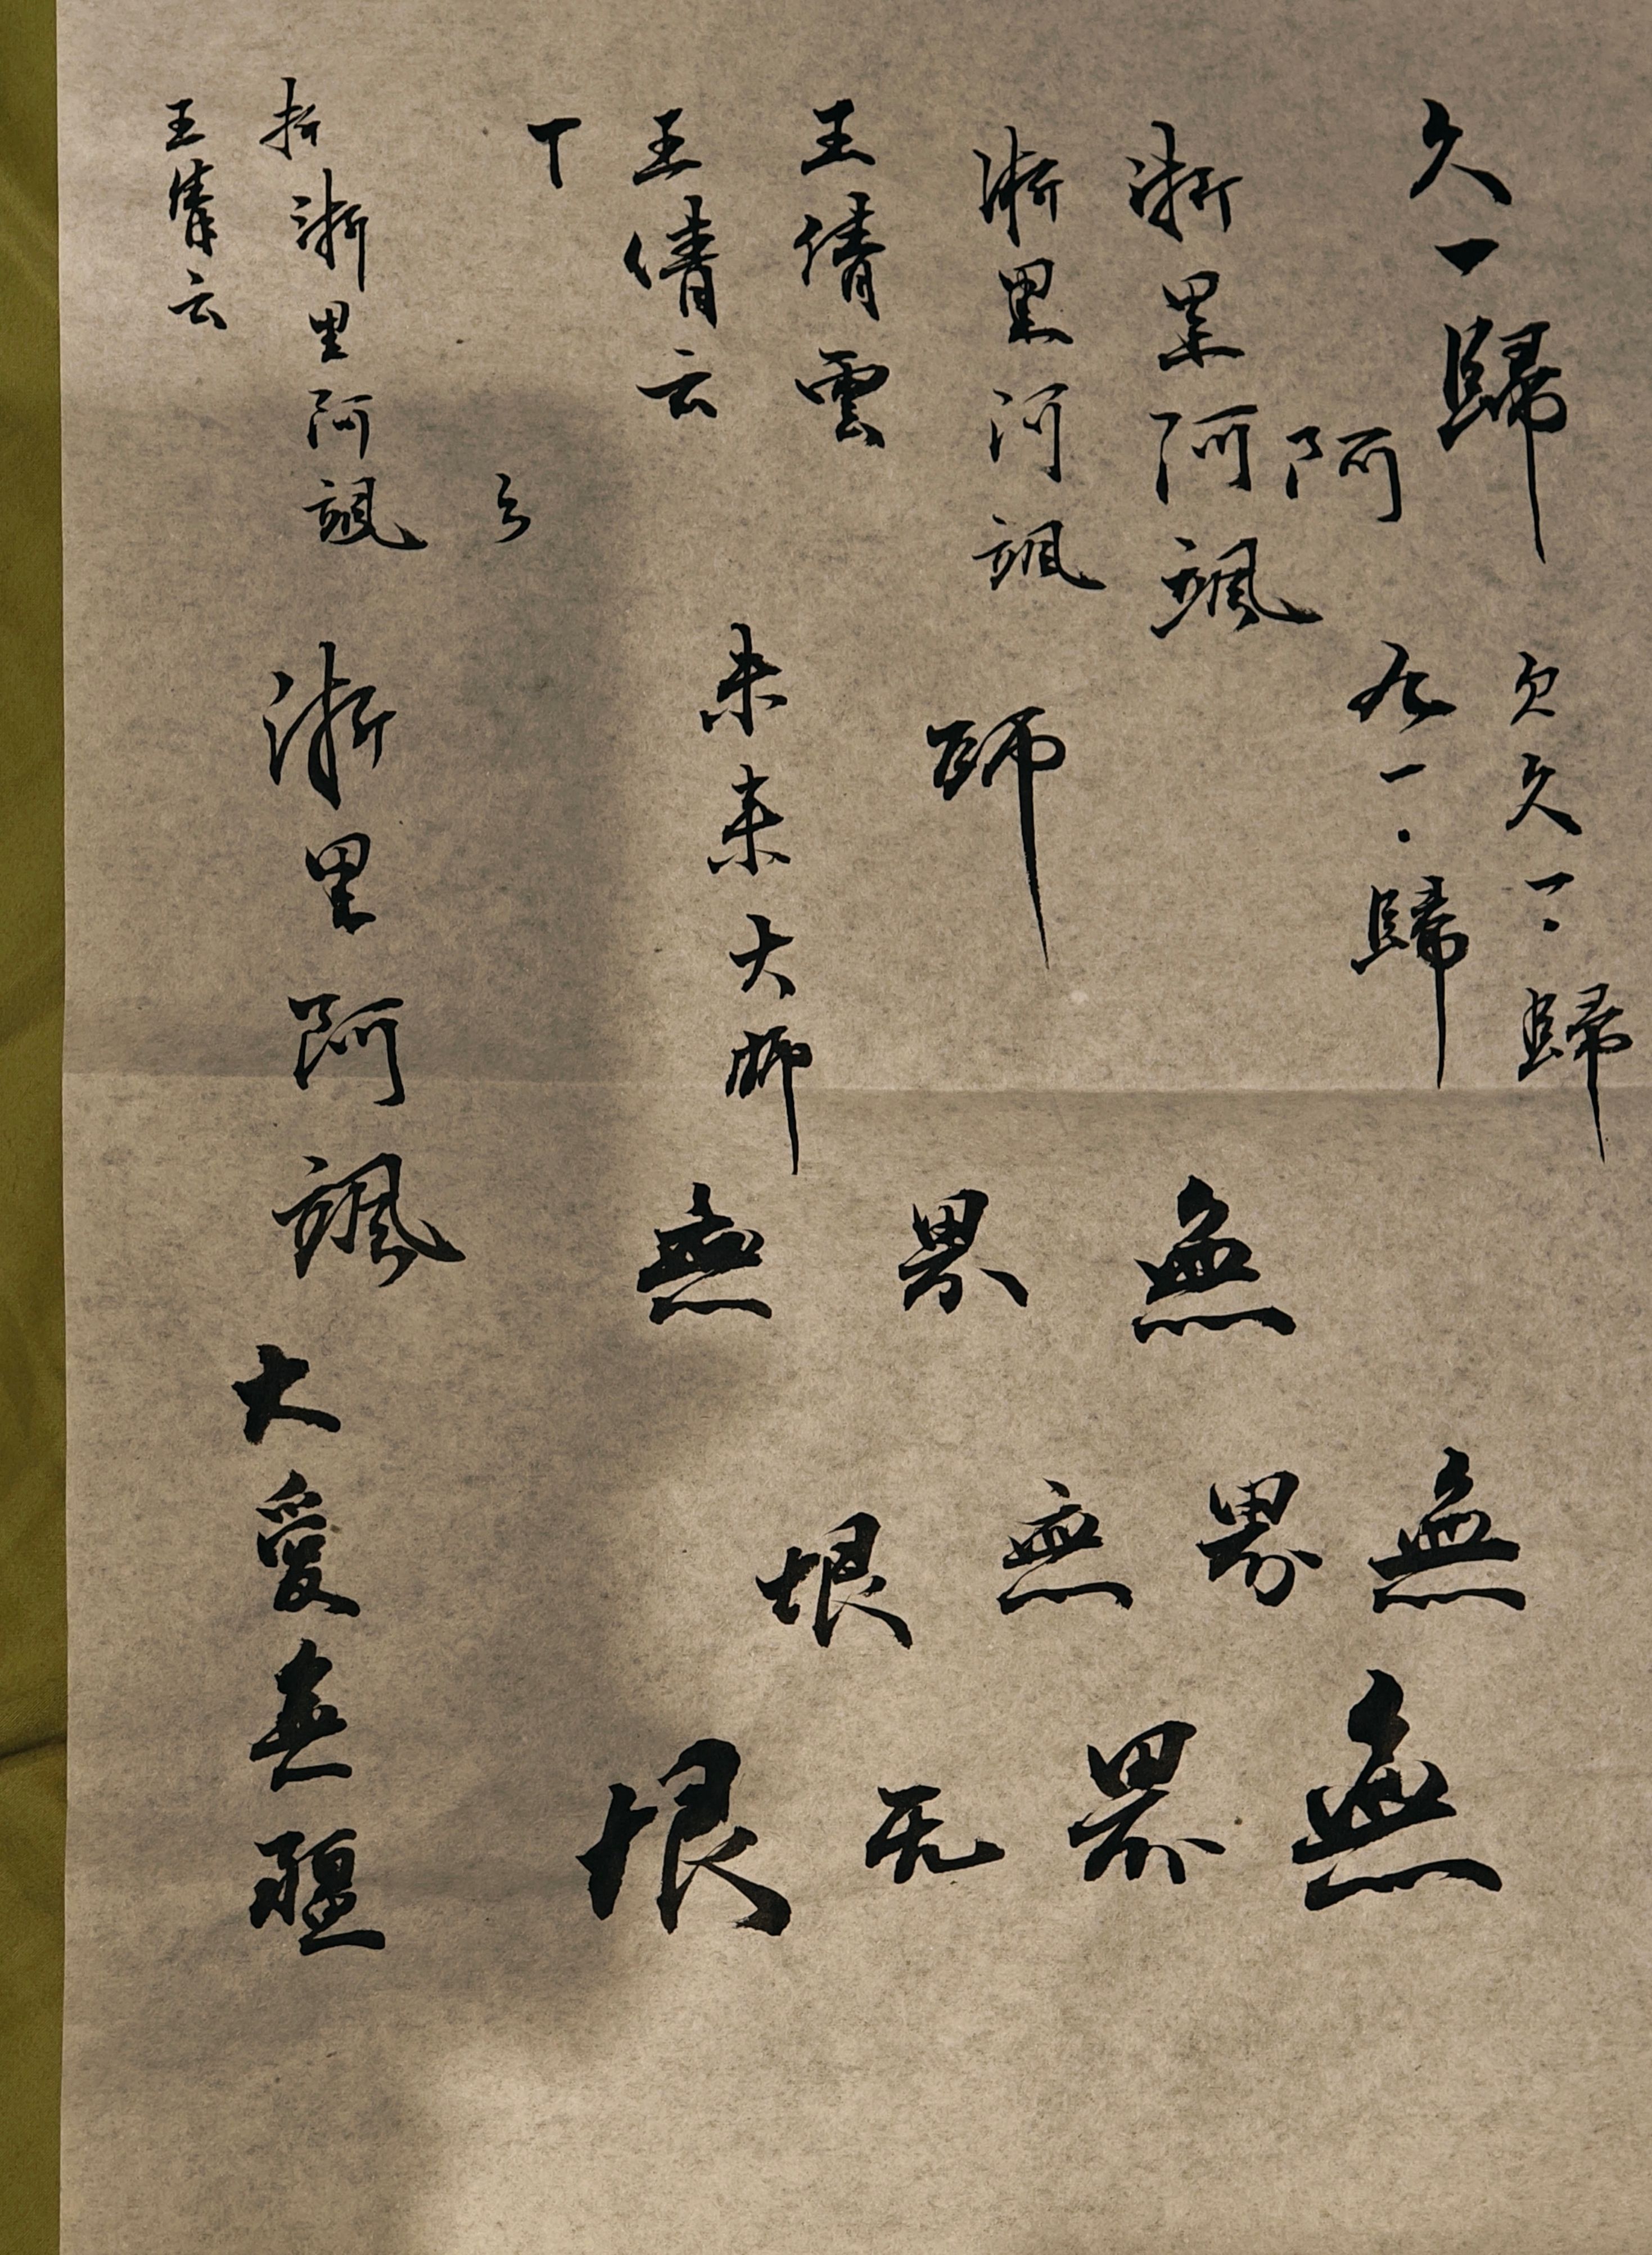 久一歸
欠久一·歸
九一·歸
阿
浙里阿颯
浙里河颯
師
王倩雲
王倩云
未来大師
丅
浙里阿颯
王倩云
浙里阿颯
無界無
無界無垠
無界无垠
大愛無疆